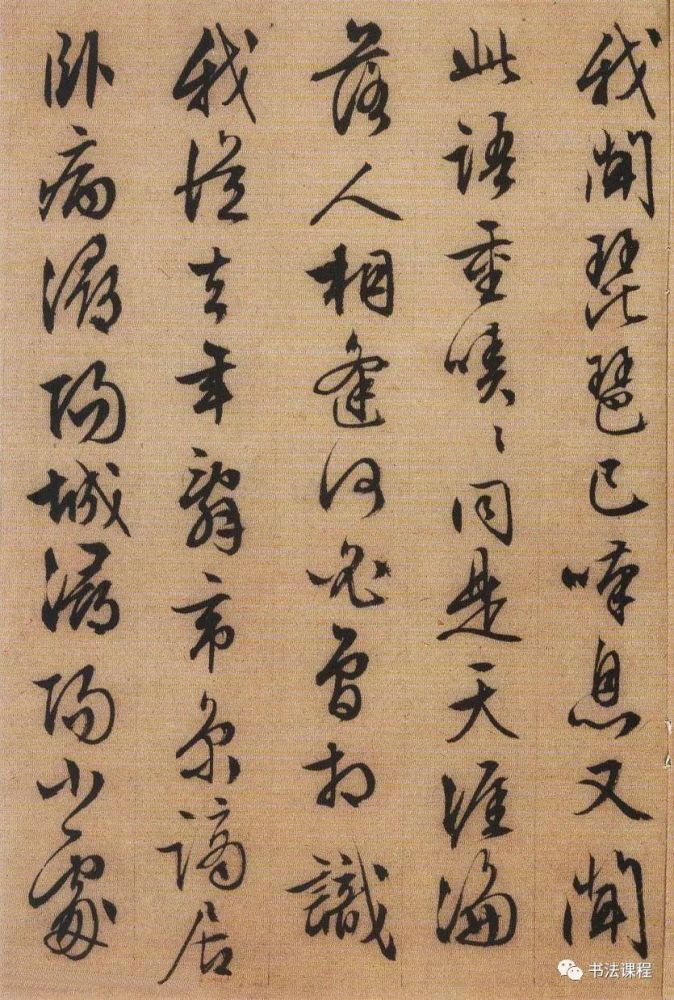 我聞琵琶已嘆息又聞
此語重唧〻同是天涯淪
落人相逢何必曾相識
我從去年辭帝京謫居
臥病潯陽城潯陽小處
书法课程